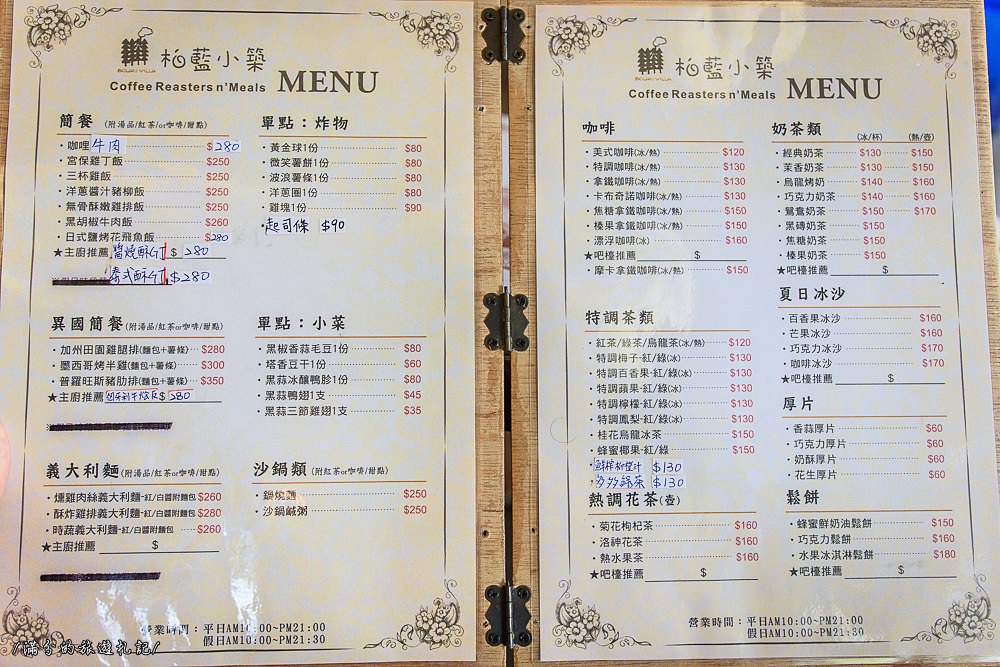 柏藍小築
BOLAN VILLA
Coffee Roasters n'Meals MENU
簡餐 (附湯品/紅茶/or咖啡/甜點)
・咖哩牛肉 $280
・宮保雞丁飯 $250
・三杯雞飯 $250
・洋蔥醬汁豬柳飯 $250
・無骨酥嫩雞排飯 $250
・黑胡椒牛肉飯 $260
・日式鹽烤花飛魚飯 $280
★主廚推薦 醬燒酥GJ $ 280
泰式酥GJ $280
異國簡餐 (附湯品/紅茶or咖啡/甜點)
・加州田園雞腿排(麵包+薯條) $280
・墨西哥烤半雞(麵包+薯條) $300
・普羅旺斯豬肋排(麵包+薯條) $350
★主廚推薦 $280
義大利麵 (附湯品/紅茶or咖啡/甜點)
・燻雞肉絲義大利麵-紅/白醬附麵包 $260
・酥炸雞排義大利麵-紅/白醬附麵包 $280
・時蔬義大利麵-紅/白醬附麵包 $260
★主廚推薦 $
單點：炸物
・黃金球1份 $80
・微笑薯餅1份 $80
・波浪薯條1份 $80
・洋蔥圈1份 $80
・雞塊1份 $90
・起司條 $90
單點：小菜
・黑椒香蒜毛豆1份 $80
・塔香豆干1份 $60
・黑蒜冰釀鴨胗1份 $80
・黑蒜鴨翅1支 $45
・黑蒜三節雞翅1支 $35
沙鍋類 (附紅茶or咖啡/甜點)
・鍋燒麵 $250
・沙鍋鹹粥 $250
營業時間：平日AM10:00~PM21:00
假日AM10:00~PM21:30
柏藍小築
BOLAN VILLA
Coffee Roasters n'Meals MENU
咖啡
・美式咖啡(冰/熱) $120
・特調咖啡(冰/熱) $130
・拿鐵咖啡(冰/熱) $130
・卡布奇諾咖啡(冰/熱) $130
・焦糖拿鐵咖啡(冰/熱) $150
・榛果拿鐵咖啡(冰/熱) $150
・漂浮咖啡(冰) $160
★吧檯推薦 $
・摩卡拿鐵咖啡(冰/熱) $150
特調茶類
・紅茶/綠茶/烏龍茶(冰/熱) $120
・特調梅子-紅/綠(冰) $130
・特調百香果-紅/綠(冰) $130
・特調蘋果-紅/綠(冰) $130
・特調檸檬-紅/綠(冰) $130
・特調鳳梨-紅/綠(冰) $130
・桂花烏龍冰茶 $150
・蜂蜜椰果-紅/綠 $150
・鮮榨柳橙汁 $130
・多多綠茶 $130
熱調花茶(壺)
・菊花枸杞茶 $160
・洛神花茶 $160
・熱水果茶 $160
★吧檯推薦 $
奶茶類 (冰/杯) (熱/壺)
・經典奶茶 $130 $150
・茉香奶茶 $130 $150
・烏龍烤奶 $140 $160
・巧克力奶茶 $140 $160
・鴛鴦奶茶 $150 $170
・黑磚奶茶 $150
・焦糖奶茶 $150
・榛果奶茶 $150
★吧檯推薦 $
夏日冰沙
・百香果冰沙 $160
・芒果冰沙 $160
・巧克力冰沙 $170
・咖啡冰沙 $170
★吧檯推薦 $
厚片
・香蒜厚片 $60
・巧克力厚片 $60
・奶酥厚片 $60
・花生厚片 $60
鬆餅
・蜂蜜鮮奶油鬆餅 $150
・巧克力鬆餅 $160
・水果冰淇淋鬆餅 $180
★吧檯推薦 $
營業時間：平日AM10:00~PM21:00
假日AM10:00~PM21:30
/滿分的旅遊札記/